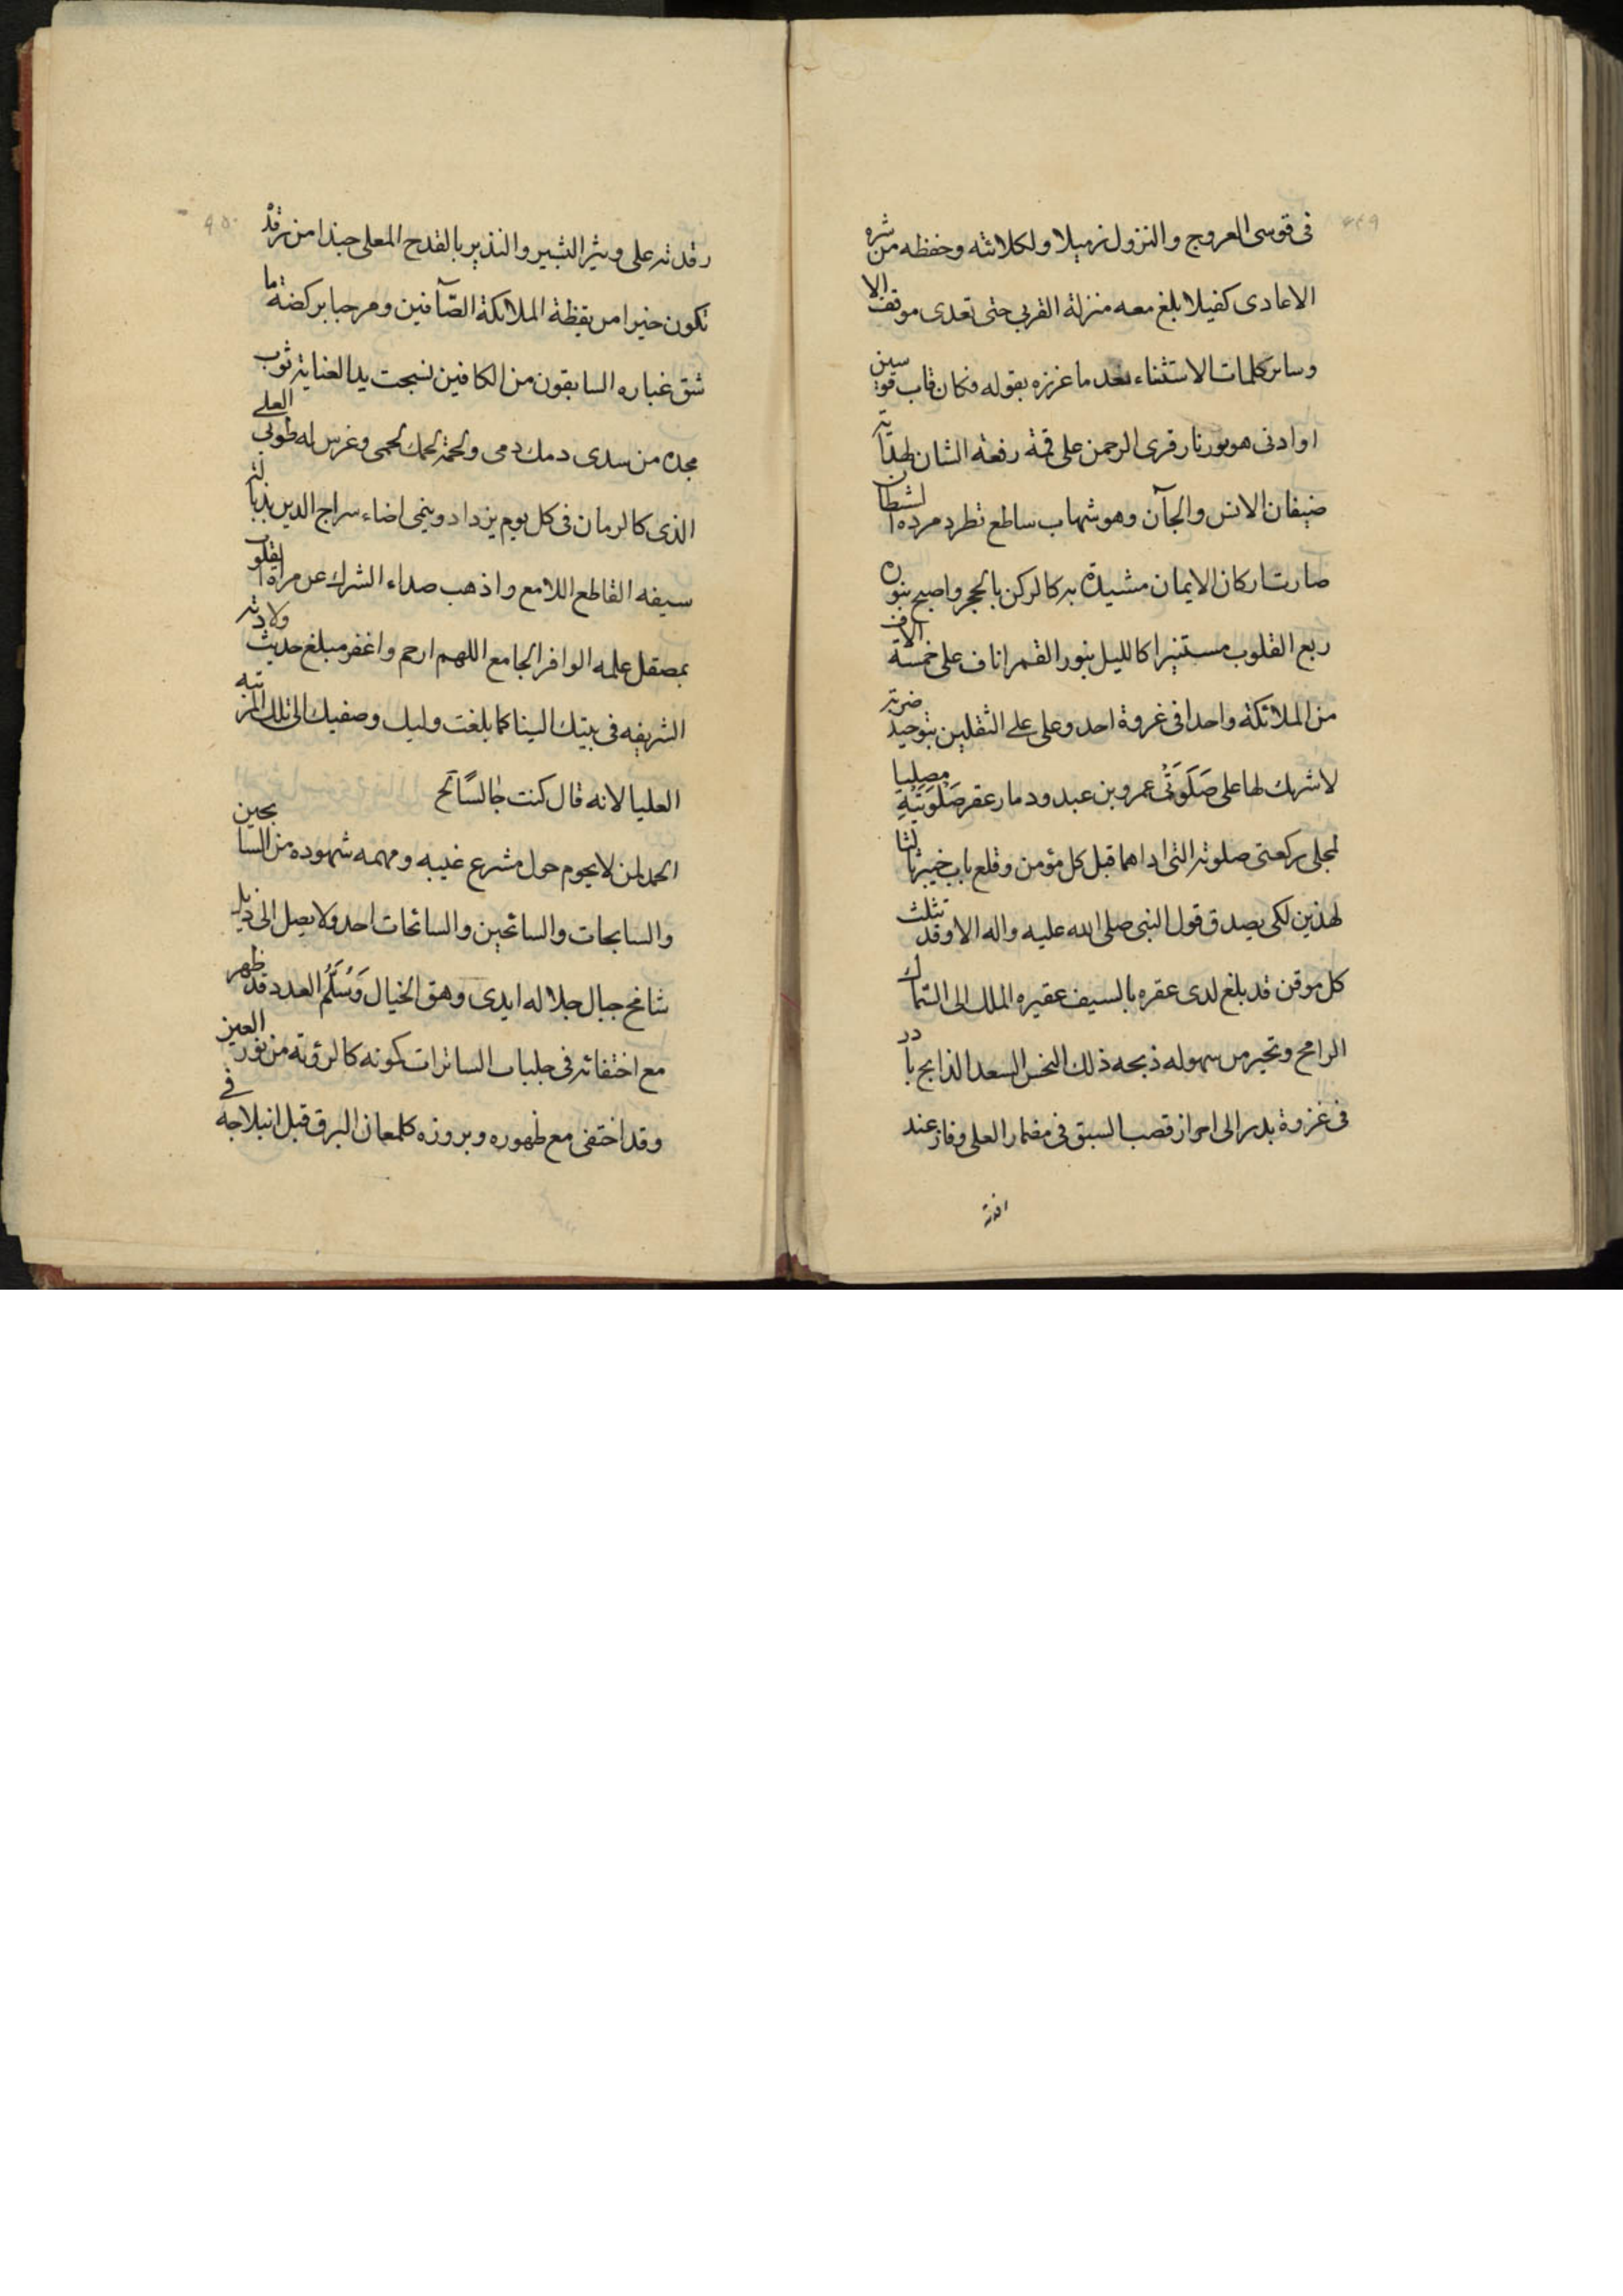 ۴۴۹
فی قوسی العروج و النزول زمیلا و لکلائته و حفظه من شره
الاعادی کفیلا بلغ معه منزلة القربی حتی تعدی موقف الا
و سایر کلمات الاستثناء بعد ما عززه بقوله فکان قاب قوسین
او ادنی هو نور نار قری الرحمن علی قمة رفعة الشان لهدایة
ضیفان الانس و الجآن و هو شهاب ساطع تطرد مردة الشطان
صارت ارکان الایمان مشیدة به کالرکن بالحجر و اصبح بنوره
ربع القلوب مستنیرا کاللیل بنور القمر اناف علی خمسة الاف
من الملائکة واحدا فی غزوة احد و علی علی الثقلین بتوحید ضربته
لا شریک لها علی صَلَوَتَیْ عمرو بن عبدود مار عقر صَلَوَتَیْهِ مصلیا
لمجلی رکعتی صلوته التی اداهما قبل کل مؤمن و قلع باب خیبر ثالثا
لهذین لکی یصدق قول النبی صلی الله علیه و اله الا و قد تثلث
کل موقن قد بلغ لدی عقره بالسیف عقیره الملک الی السماک
الرامح و تحیر من سهوله ذبحه ذلک النحس السعد الذابح بادر
فی غزوة بدر الی احراز قصب السبق فی مضمار العلی و فاز عند
۴۵۰
رقدته علی و یثر البشیر و النذیر بالقدح المعلی حبذا من ترقد
تکون خیرا من یقظة الملائکة الصآفین و مرحبا برکضة ما
شق غباره السابقون من الکافین نسجت ید العنایة ثوب
مجده من سدی دمک دمی و لحمة لحمک لحمی و غرس له طوبی العلی
الذی کالرمان فی کل یوم یزداد و ینمی اضاء سراج الدین بذبالة
سیفه القاطع اللامع و اذهب صداء الشرک عن مراة القلوب
بمصقل علمه الوافر الجامع اللهم ارحم و اغفر مبلغ حدیث ولادته
الشریفه فی بیتک الینا کما بلغت ولیک و صفیک الی تلک المرتبه
العلیا لانه قال کنت جالسًا تح
الحمد لمن لا یحوم حول مشرع غیبه و مهمه شهوده من السابحین
و السابحات و السائحین و السائحات احد و لا یصل الی ذیل
شامخ جبال جلاله ایدی وهق الخیال وَسُلَّمُ العدد قد ظهر
مع اختفائه فی جلباب الساترات کمونه کالرؤته من نور العین
و قد اختفی مع ظهوره و بروزه کلمعان البرق قبل انبلاجه فی